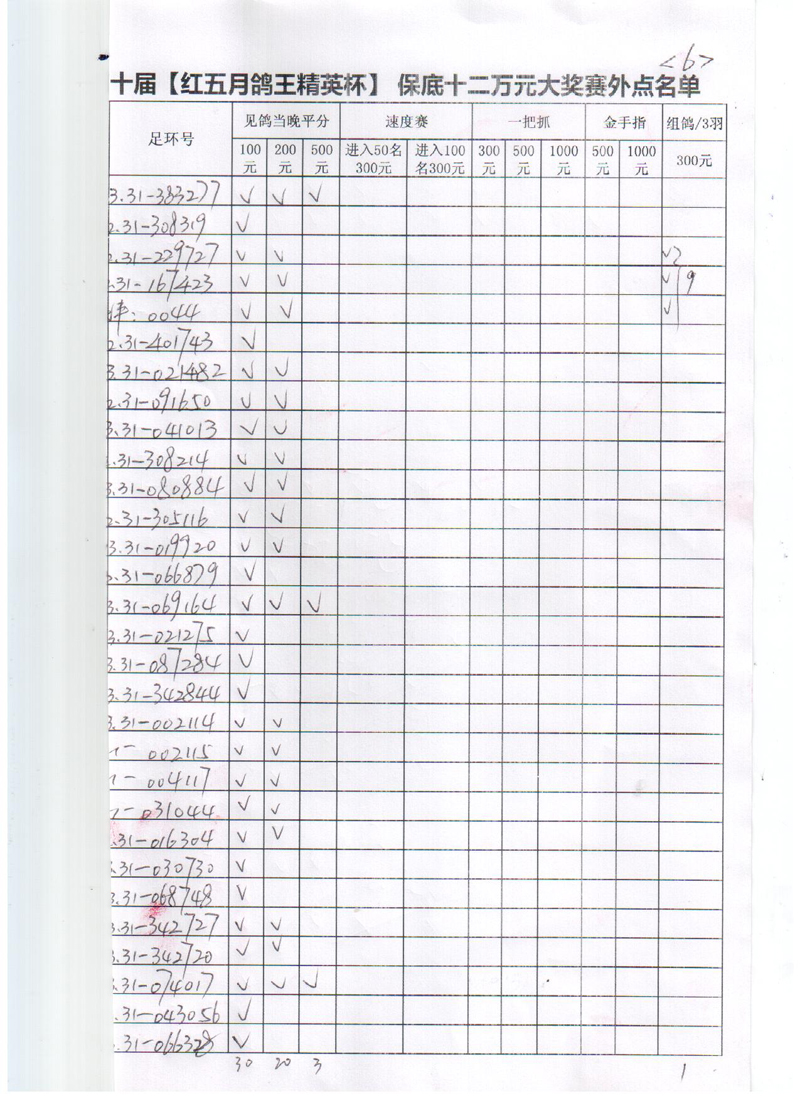 <6>
十届【红五月鸽王精英杯】 保底十二万元大奖赛外点名单
足环号 见鸽当晚平分 速度赛 一把抓 金手指 组鸽/3羽
100元 200元 500元 进入50名300元 进入100名300元 300元 500元 1000元 500元 1000元 300元
3.31-383277 ✓ ✓ ✓
2.31-308319 ✓
2.31-229727 ✓ ✓ ✓
.31-167423 ✓ ✓ ✓ 9
0044 ✓ ✓ ✓
2.31-401743 ✓
3.31-021482 ✓ ✓
2.31-091650 ✓ ✓
3.31-041013 ✓ ✓
.31-308214 ✓ ✓
3.31-080884 ✓ ✓
2.31-305116 ✓ ✓
3.31-019920 ✓ ✓
3.31-066879 ✓
3.31-069164 ✓ ✓ ✓
3.31-021275 ✓
3.31-087284 ✓
3.31-342844 ✓
3.31-002114 ✓ ✓
1-002115 ✓ ✓
1-004117 ✓ ✓
1-031044 ✓ ✓
.31-016304 ✓ ✓
.31-030730 ✓
3.31-068748 ✓
3.31-342727 ✓ ✓
3.31-342720 ✓ ✓
3.31-074017 ✓ ✓ ✓
.31-043056 ✓
.31-066328 ✓
30 20 3 1